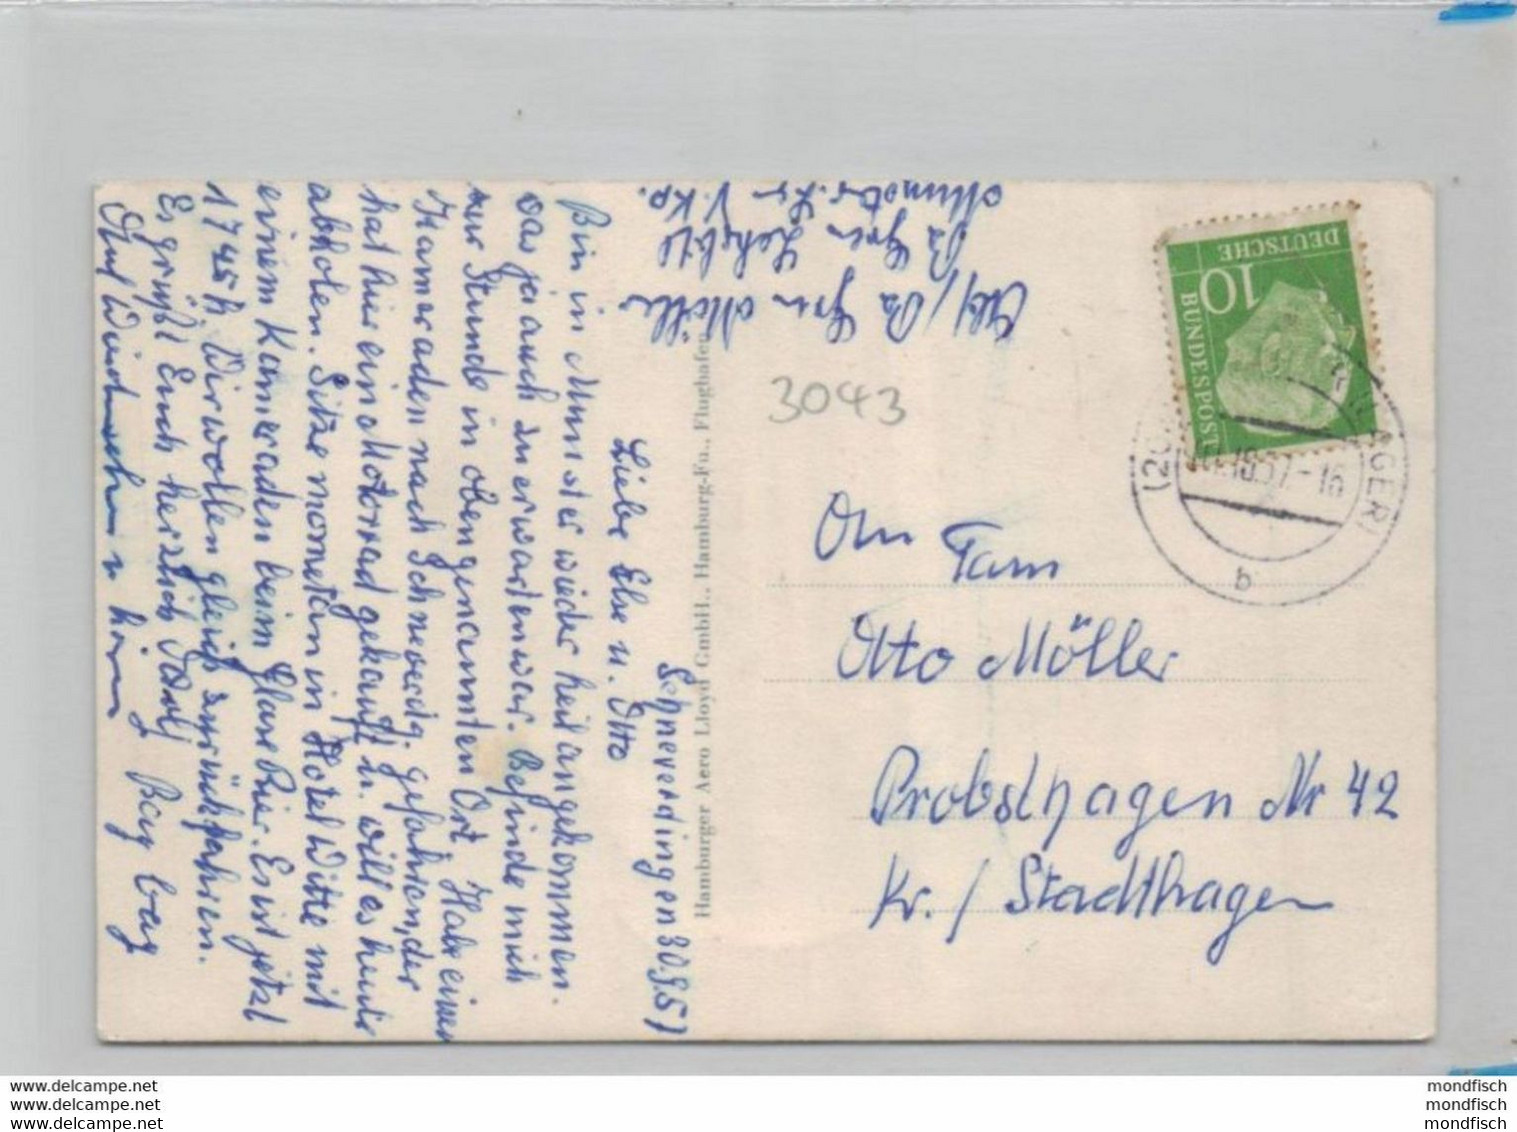 Schneverdingen 30.9.57
Liebe Else u. Otto
Bin in Munster wieder heil angekommen.
das ja auch zu erwarten war. Befinde mich
zur Stunde in obengenannten Ort. Habe einen
Kameraden nach Schneverdg. gefahren, der
hat hier ein Motorrad gekauft u. will es heute
abholen. Sitze momentan in Hotel Witte mit
einem Kameraden beim Glase Bier. Es ist jetzt
1745h Wir wollen gleich zurückfahren.
Es grüßt Euch herzlich
Auf Wiedersehen
Möller
V. Kp.
Hamburger Aero Lloyd GmbH., Hamburg-Fu., Flughafen
3043
DEUTSCHE
10
BUNDESPOST
57-16
LAGER)
b
An Fam
Otto Möller
Probsthagen Nr 42
Kr. / Stadthagen
www.delcampe.net
www.delcampe.be
www.delcampe.com
mondfisch
mondfisch
mondfisch